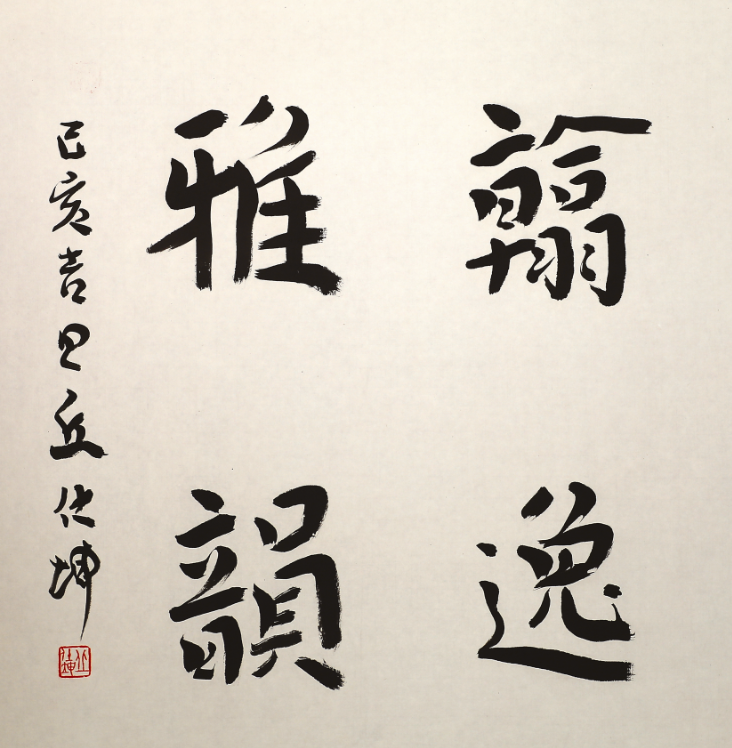 翰逸
雅韻
己亥吉日丘仕坤